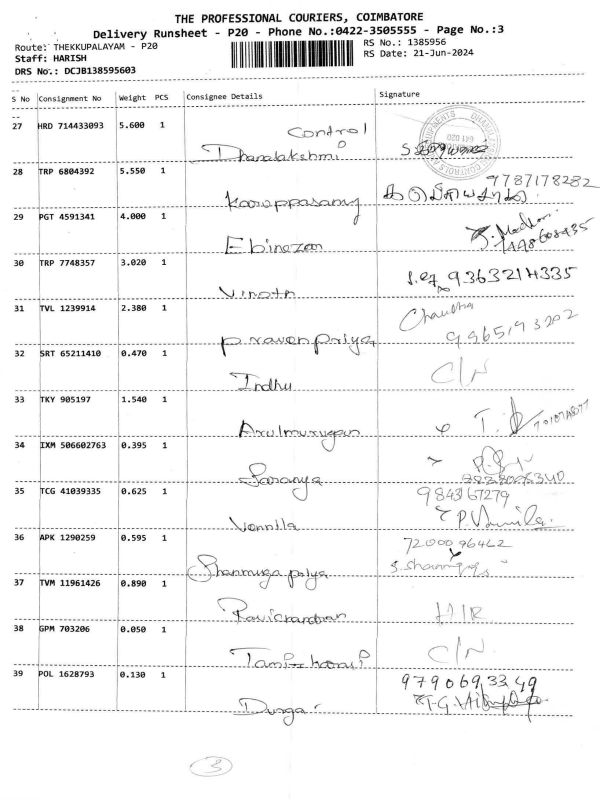 THE PROFESSIONAL COURIERS, COIMBATORE
Delivery Runsheet - P20 - Phone No.:0422-3505555 - Page No.:3
Route: THEKKUPALAYAM - P20
RS No.: 1385956
Staff: HARISH
RS Date: 21-Jun-2024
DRS No.: DCJB138595603
S No Consignment No Weight PCS Consignee Details Signature
27 HRD 714433093 5.600 1
Control
Dhanalakshmi
28 TRP 6804392 5.550 1
9787178282
Karuppasamy
29 PGT 4591341 4.000 1
Ebinezar
30 TRP 7748357 3.020 1
9363214335
Vinoth
31 TVL 1239914 2.380 1
Chandha
9965193202
P.ravenpriya
32 SRT 65211410 0.470 1
C/N
Indhu
33 TKY 905197 1.540 1
Arulmurugan
34 IXM 506602763 0.395 1
Saranya
35 TCG 41039335 0.625 1
9843167279
Vennila
P.Vennila
36 APK 1290259 0.595 1
7200096462
Shanmuga priya
37 TVM 11961426 0.890 1
Ravichandran
38 GPM 703206 0.050 1
C/N.
39 POL 1628793 0.130 1
9790693349
Durga
3